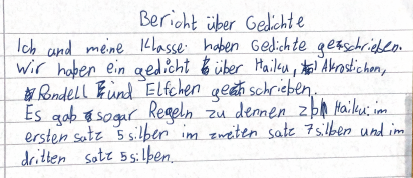 Bericht über Gedichte
Ich und meine Klasse haben Gedichte geschrieben.
Wir haben ein gedicht über Haiku, Akrostichon,
Rondell und Elfchen geschrieben.
Es gab sogar Regeln zu dennen zb Haiku: im
ersten satz 5 silben im zweiten satz 7 silben und im
dritten satz 5 silben.